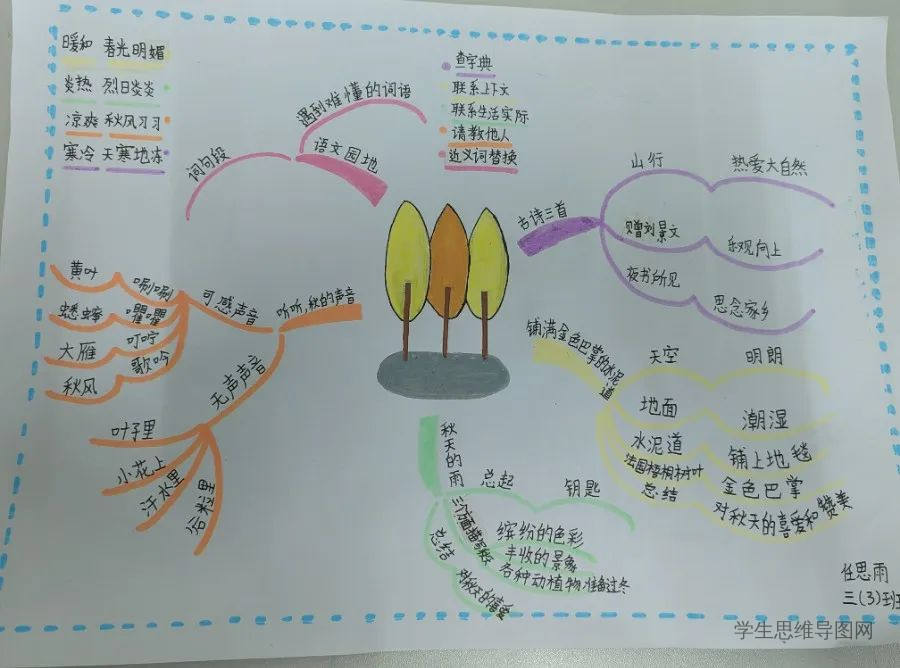 暖和 春光明媚
炎热 烈日炎炎
凉爽 秋风习习
寒冷 天寒地冻
词句段
遇到难懂的词语
语文园地
查字典
联系上下文
联系生活实际
请教他人
近义词替换
古诗三首
山行
热爱大自然
赠刘景文
乐观向上
夜书所见
思念家乡
听听,秋的声音
可感声音
黄叶
唰唰
蟋蟀
㘗㘗
大雁
叮咛
秋风
歌吟
无声声音
叶子里
小花上
汗水里
谷粒里
铺满金色巴掌的水泥道
天空
明朗
地面
潮湿
水泥道
铺上地毯
法国梧桐树叶
金色巴掌
总结
对秋天的喜爱和赞美
秋天的雨
总起
钥匙
三个方面描写秋天
缤纷的色彩
丰收的景象
各种动植物准备过冬
总结
对秋天的喜爱
任思雨
三(3)班
学生思维导图网